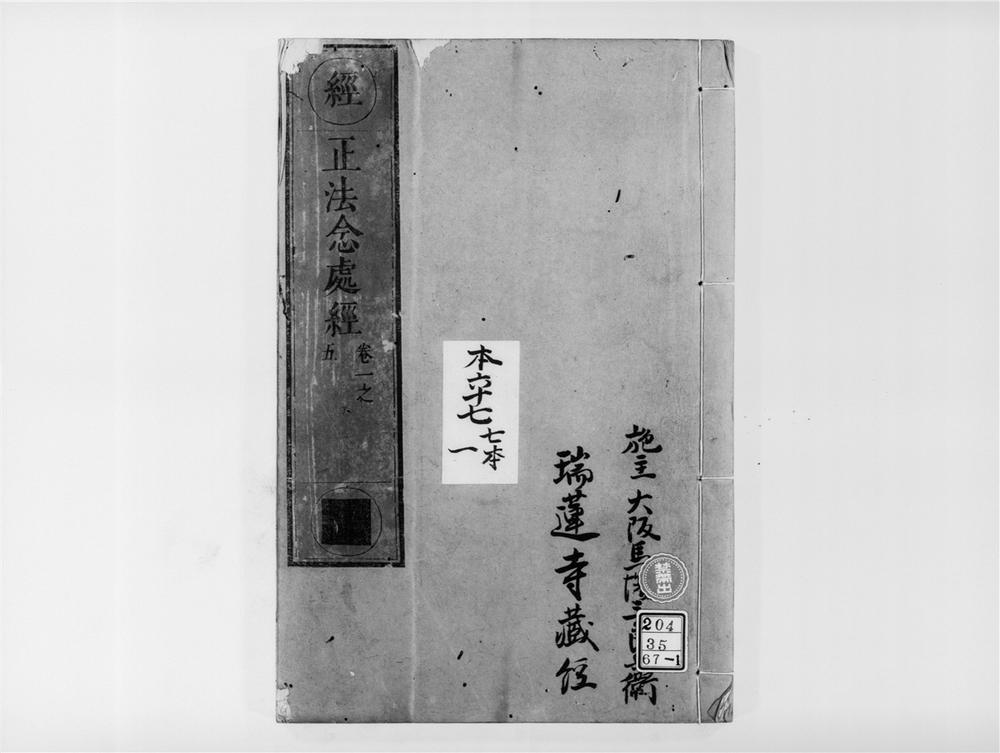 經
正法念處經
卷一之
五
本六十七
七本
一
施主 大阪馬
衛
瑞蓮寺藏經
禁帶出
204
35
67-1